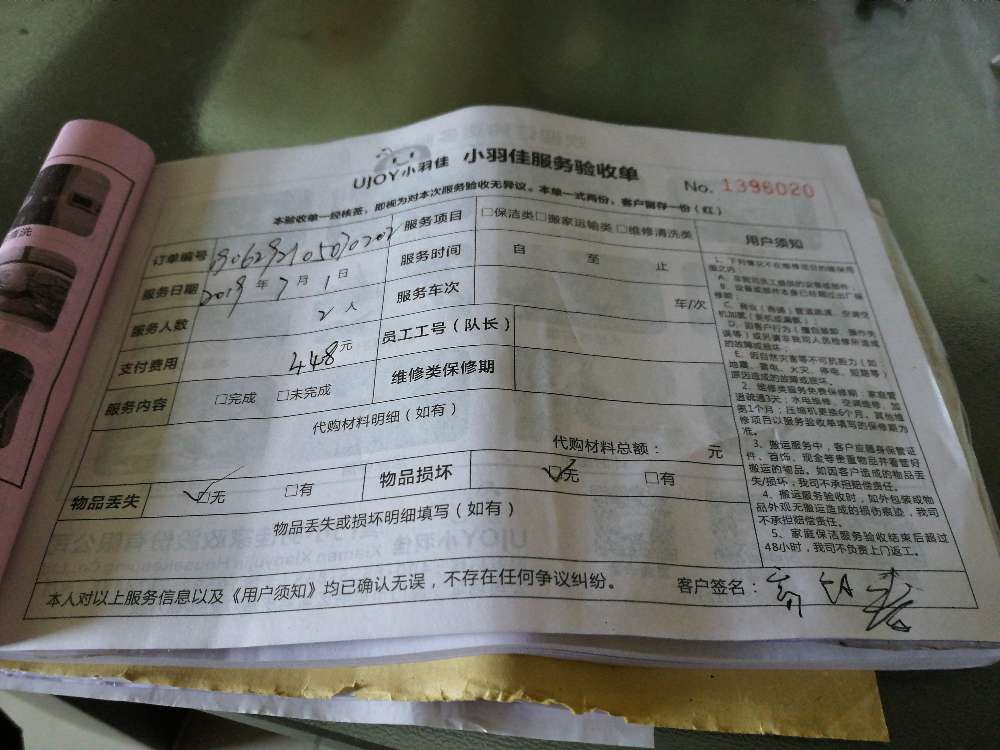 UJOY小羽佳 小羽佳服务验收单
No. 1396020
本验收单一经核签，即视为对本次服务验收无异议。本单一式两份，客户留存一份（红）
订单编号 服务项目 □保洁类□搬家运输类 □维修清洗类
服务日期 2019 年 7 月 1 日 服务时间 自 至 止
服务人数 2 人 服务车次 车/次
支付费用 448 元 员工工号（队长）
服务内容 □完成 □未完成 维修类保修期
代购材料明细（如有）
代购材料总额： 元
物品丢失 ☑无 □有 物品损坏 ☑无 □有
物品丢失或损坏明细填写（如有）
本人对以上服务信息以及《用户须知》均已确认无误，不存在任何争议纠纷。 客户签名：
用户须知
1、下列情况不在维修项目的维保范
围之内：
A、非我司员工提供的设备或部件
B、设备或部件本身已经超过出厂保
修期
E、因自然灾害等不可抗原力（如
地震、雷电、火灾、停电、短路等）
原因造成的故障或损坏。
2、维修类服务免费保修期：家庭管
道疏通3天；水电维修、空调维修、加
氟1个月；压缩机更换6个月，其他维
修项目以服务验收单填写的保修期为
准。
3、搬运服务中，客户应随身保管证
件、首饰、现金等贵重物品并看管好
搬运的物品。如因客户造成的物品丢
失/损坏，我司不承担赔偿责任。
4、搬运服务验收时，如外包装或物
品外观无搬运造成的损伤痕迹，我司
不承担赔偿责任。
5、家庭保洁服务验收结束后超过
48小时，我司不负责上门返工。